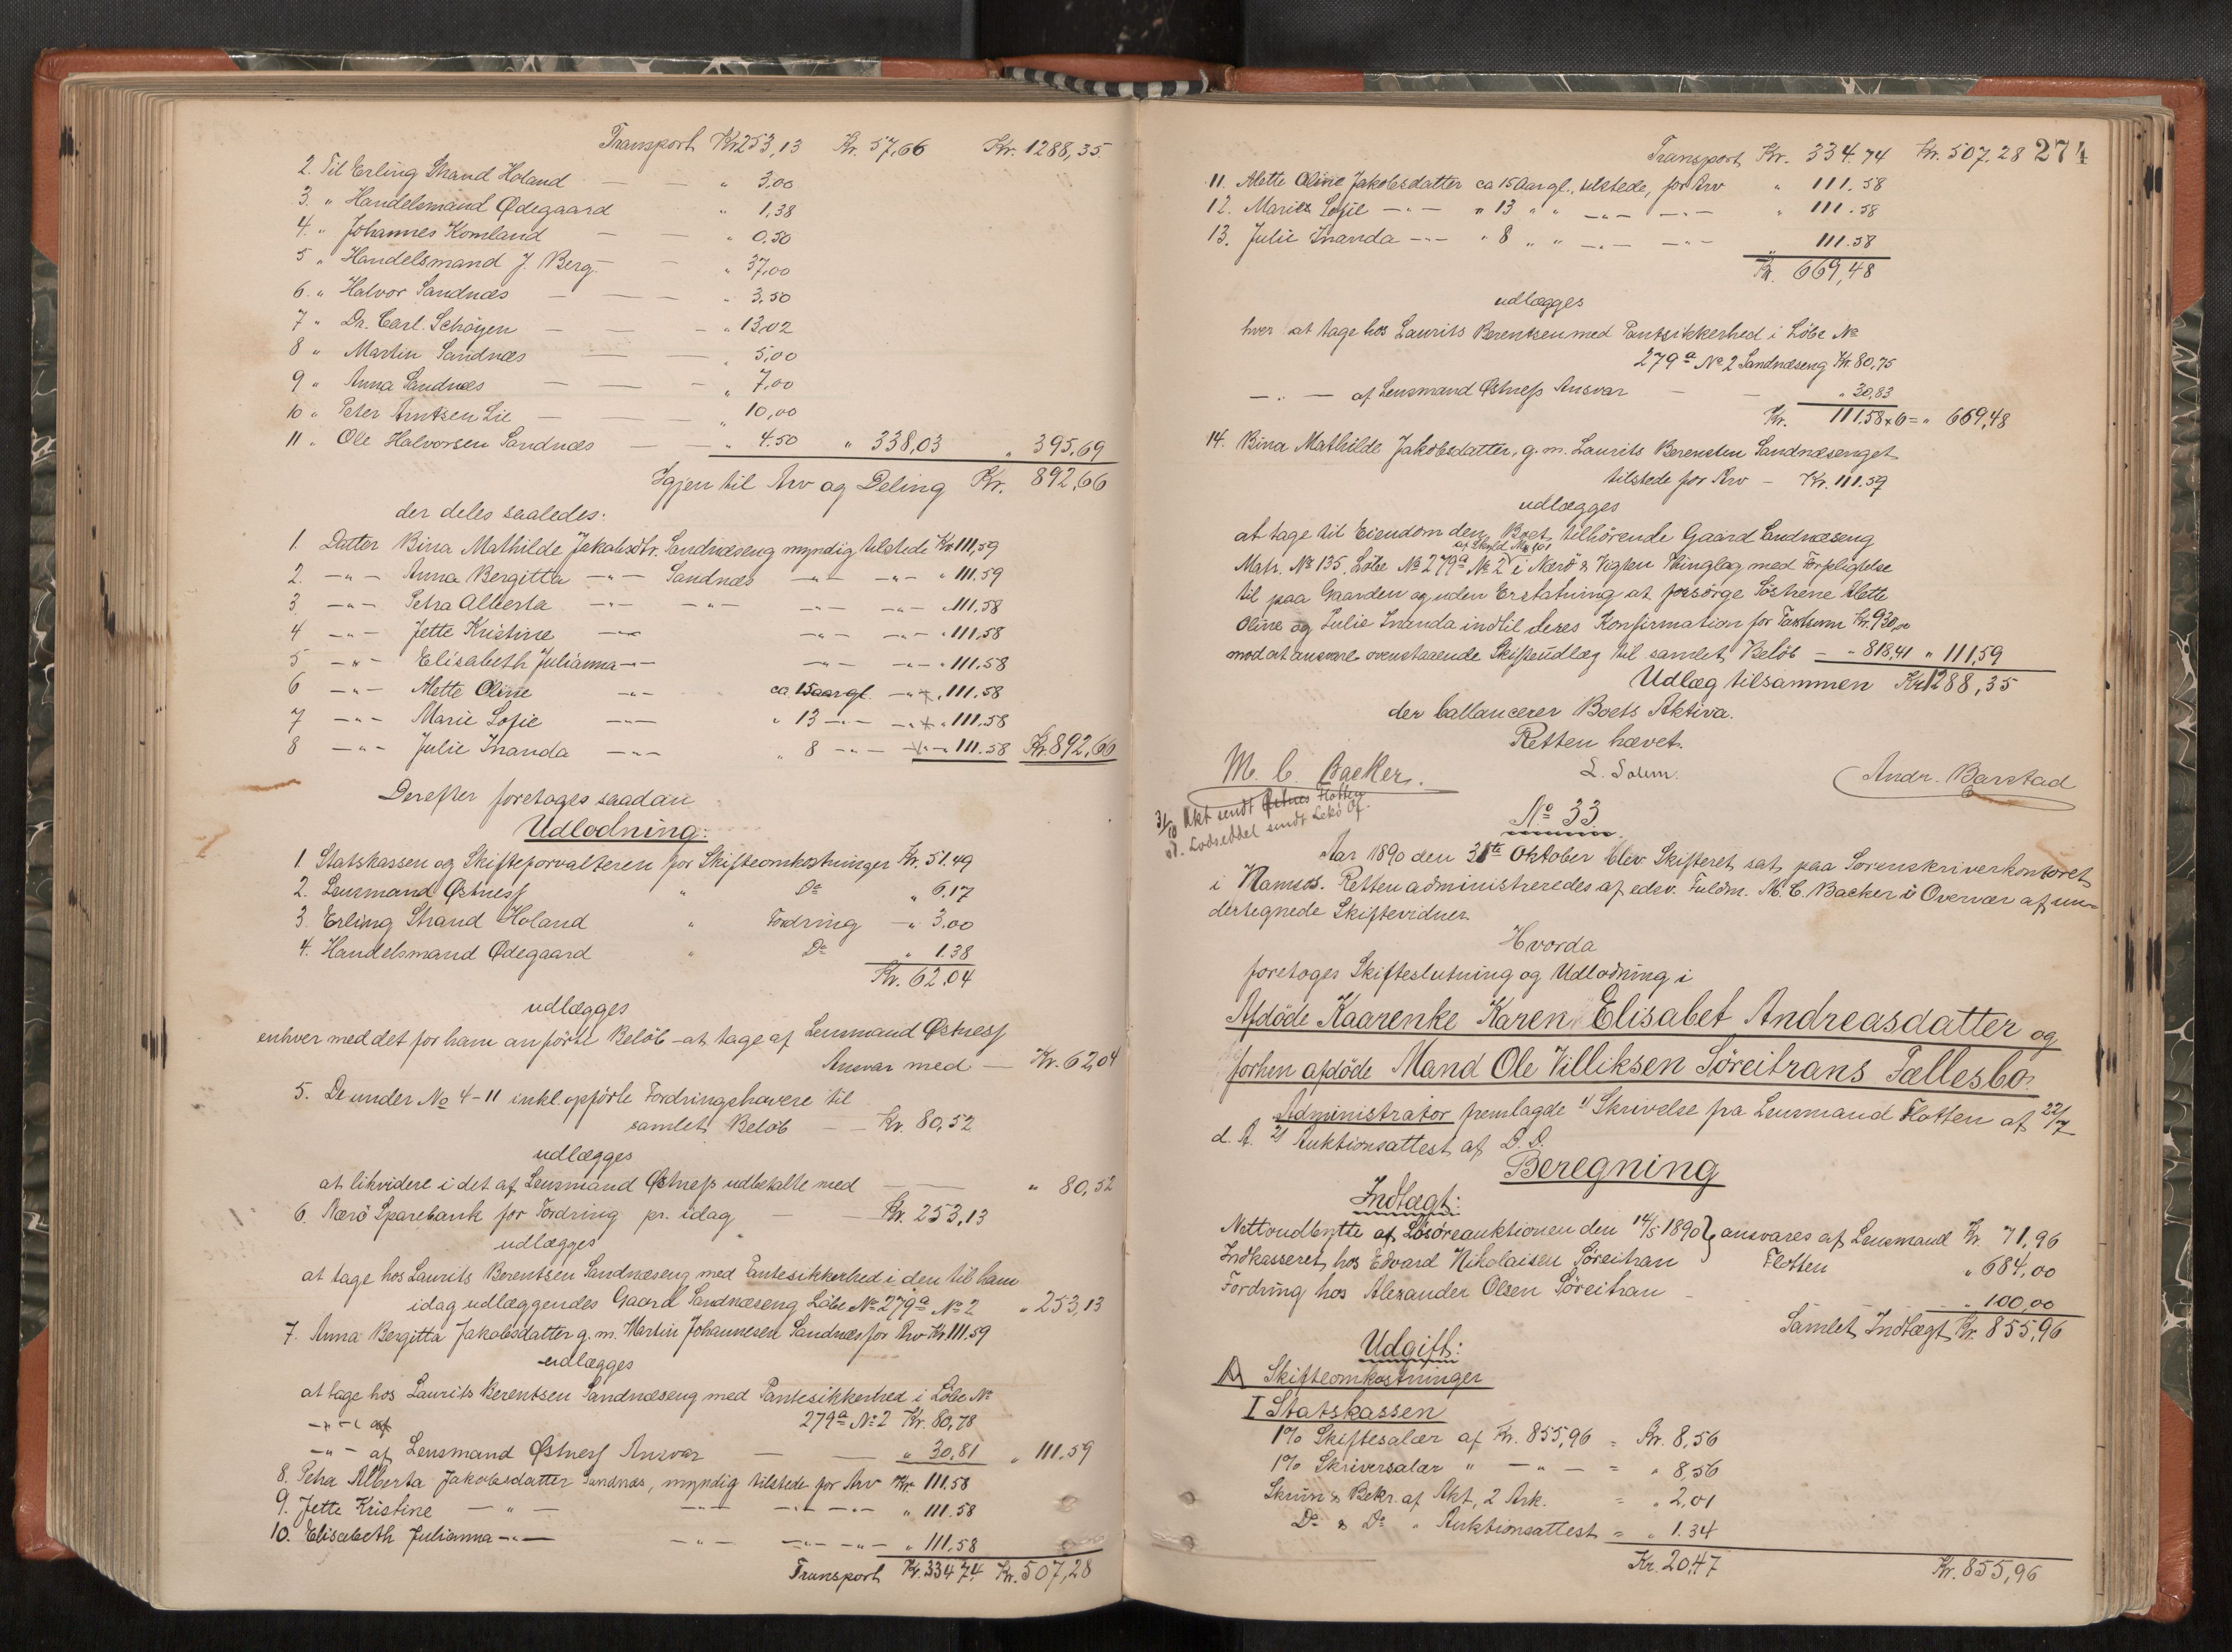 Transport Kr 253,13 Kr. 57,66 Kr. 1288,35.
2. Til Erling Strand Holand — — " 3,00
3. " Handelsmand Ødegaard " 1,38
4. " Johannes Komland — — " 0.50
5 " Handelsmand J. Berg — — " 37,00
6. " Halvor Sandnæs — — — " 3.50
7 " Dr. Carl. Schøyen — — — " 13,02
8 " Martin Sandnæs — — " 5,00
9 " Anna Sandnæs — — — " 7,00
10 " Peter Arntsen Lie — — " 10,00
11 " Ole Halvorsen Sandnæs — — " 4.50 " 338,03 " 395,69
Igjen til Arv og Deling Kr. 892,66
der deles saaledes:
1. Datter Bina Mathilde Jakobsdtr. Sandnæseng myndig tilstede Kr 111,59
2. —"— Anna Bergitta —"— Sandnæs —"— —"— " 111.59
3 —"— Petra Alberta —"— —"— —"— —"— " 111.58
4 —"— Jette Kristine —"— —"— —"— " 111,58
5 —"— Elisabeth Julianna —"— —"— —"— " 111.58
6 —"— Mette Oline —"— ca. 15 aar gl. —"— " 111.58
7 —"— Marie Sofie —"— " 13 —"— —"— " 111.58
8 —"— Julie Inanda —"— " 8 —"— —"— 111.58 Kr. 892,66
Derefter foretoges saadan
Udlodning:
1. Statskassen og Skifteforvalteren for Skifteomkostninger Kr. 51.49
2. Lensmand Østness " Do " 6.17
3. Erling Strand Holand " Fordring —" 3,00
4. Handelsmand Ødegaard " Do " 1.38
Kr. 62,04
udlægges
enhver med det for ham anførte Beløb at tage af Lensmand Østness
Ansvar med — Kr. 62,04
5. De under No 4-11 inkl. opførte Fordringshavere til
samlet Beløb — — Kr. 80,52
udlægges
at likvidere i det af Lensmand Østness udbetalte med — " 80,52
6. Nærö Sparebank for Fordring pr. idag — Kr. 253,13
udlægges
at tage hos Laurits Berentsen Sandnæseng med Pantesikkerhed i den til ham
idag udlæggendes Gaard Sandnæseng Löbe No 279a No 2 " 253,13
7. Anna Bergitta Jakobsdatter g. m. Martin Johannesen Sandnæs for Arv Kr. 111.59
udlægges
at tage hos Laurits Berentsen Sandnæseng med Pantesikkerhed i Löbe No
—"— af 279a No 2 Kr. 80,78
—"— af Lensmand Østness Ansvar — " 30,81 " 111.59
8. Petra Alberta Jakobsdatter Sandnæs, myndig tilstede for Arv Kr 111.58
9. Jette Kristine —"— —"— —"— —"— " 111.58
10. Elisabeth Julianna —"— —"— —"— —"— " 111,58
Transport Kr. 334 74 Kr. 507,28
Transport Kr. 334.74 Kr. 507.28 274
11. Mette Oline Jakobsdatter ca 15 Aar gl., tilstede, for Arv " 111.58
12. Marie Sofie —"— " 13 " " —"— —"— " 111.58
13. Julie Inanda —"— " 8 " " —"— —"— " 111.58
Kr. 669,48
udlægges
hver at tage hos Laurits Berentsen med Pantsikkerhed i Löbe No
279a No 2 Sandnæseng Kr. 80,75
—"— af Lensmand Østness Ansvar — — " 30,83
Kr. 111.58 x 6 = " 669,48
14. Bina Mathilde Jakobsdatter, g. m. Laurits Berentsen Sandnæsenget
tilstede for Arv — Kr. 111.59
udlægges
at tage til Eiendom den Boet tilhörende Gaard Sandnæseng
af Skyld Mk
Matr. No 135. Löbe No 279a No 2 i Nærö & Vigten Thinglag med Forpligtelse
til paa Gaarden og uden Erstatning at forsörge Söstrene Mette
Oline og Julie Inanda indtil deres Konfirmation for Taxtsum Kr. 930,00
mod at ansvare ovenstaaende Skifteudlæg til samlet Belöb — " 818,41 " 111,59
Udlæg tilsammen Kr 1288,35
der ballancerer Boets Aktiva.
Retten hævet.
M. C. Backer. L. Solem. Andr. Barstad
31/10 Akt sendt Østnes Flotten
Lodseddel sendt Lekö Of.
No 33
Aar 1890 den 31te Oktober blev Skifteret sat paa Sorenskriverkontoret
i Namsos. Retten administreredes af edsv. Fuldm. M. C. Backer i Overvær af un-
dertegnede Skiftevidner.
Hvorda
foretoges Skifteslutning og Udlodning i
Afdöde Kaarenke Karen Elisabet Andreasdatter og
forhen afdöde Mand Ole Villiksen Söreitrans Fællesbo.
Administrator fremlagde 1) Skrivelse fra Lensmand Flotten af 22/7
d. A. 2) Auktionsattest af D. D.
Beregning
Indtægt:
Nettoudbytte af Lösöreauktionen den 14/5 1890 } ansvares af Lensmand Kr. 71,96
Indkasseret hos Edvard Nikolaisen Söreitran Flotten " 684,00
Fordring hos Alexander Olsen Söreitran — " 100,00
Samlet Indtægt Kr. 855,96
Udgift:
A Skifteomkostninger
I Statskassen
1% Skiftesalær af Kr. 855,96 = Kr. 8,56
1% Skriversalær " —"— = " 8,56
Skrivn & Bekr. af Akt, 2 Ark. = " 2,01
Do & Do " Auktionsattest = " 1.34
Kr. 20,47 Kr. 855,96